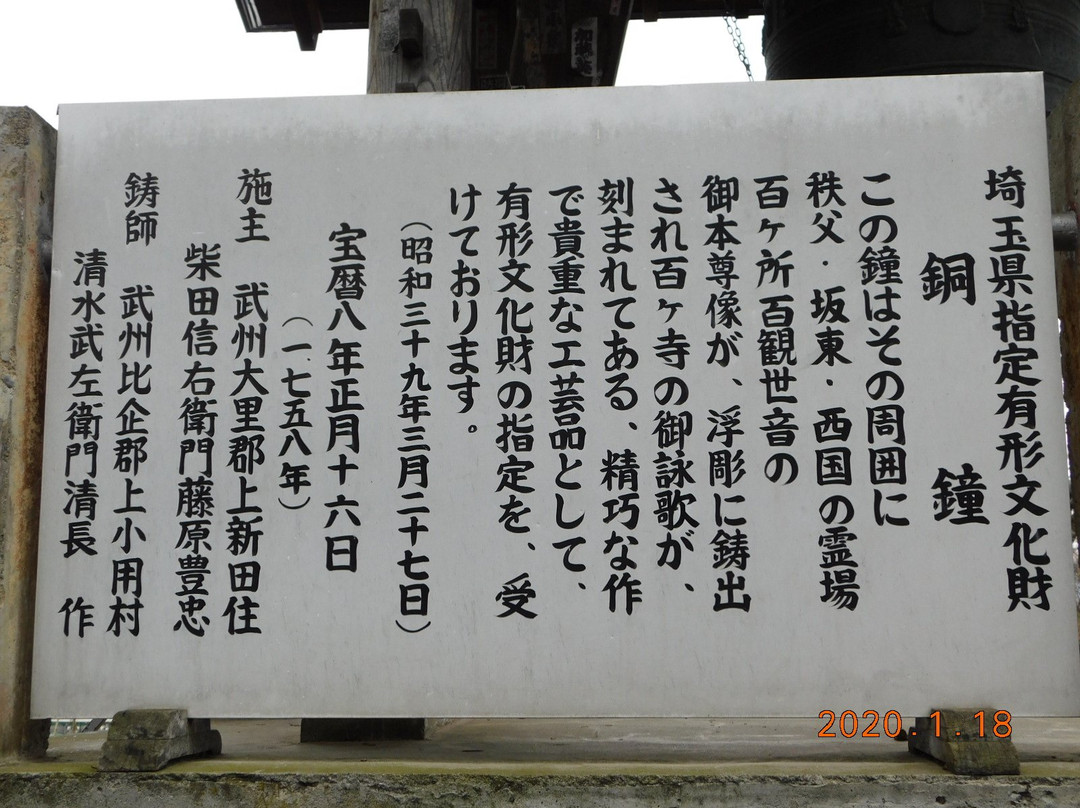 埼玉県指定有形文化財
銅鐘
この鐘はその周囲に
秩父・坂東・西国の霊場
百ヶ所百観世音の
御本尊像が、浮彫に鋳出
され百ヶ寺の御詠歌が、
刻まれてある、精巧な作
で貴重な工芸品として、
有形文化財の指定を、受
けております。
（昭和三十九年三月二十七日）
宝暦八年正月十六日
（一、七五八年）
施主　武州大里郡上新田住
柴田信右衛門藤原豊忠
鋳師　武州比企郡上小用村
清水武左衛門清長　作
2020. 1. 18